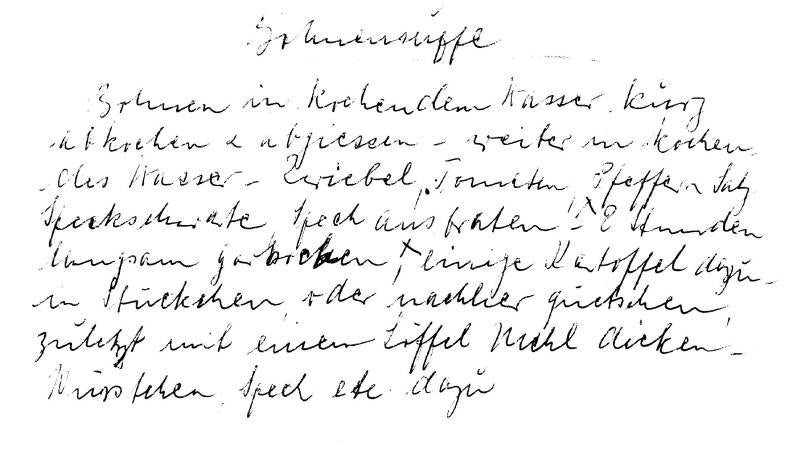 Bohnensuppe
Bohnen in kochendem Wasser kurz
abkochen & abgiessen - weiter in kochen-
des Wasser - Zwiebel, Tomaten, Pfeffer Salz
Speckschwarte, Speck ausbraten - 2 Stunden
langsam gar kochen, einige Kartoffel dazu -
in Stückchen oder nachher quetschen,
zuletzt mit einem Löffel Mehl dicken -
Würstchen, Speck etc dazu